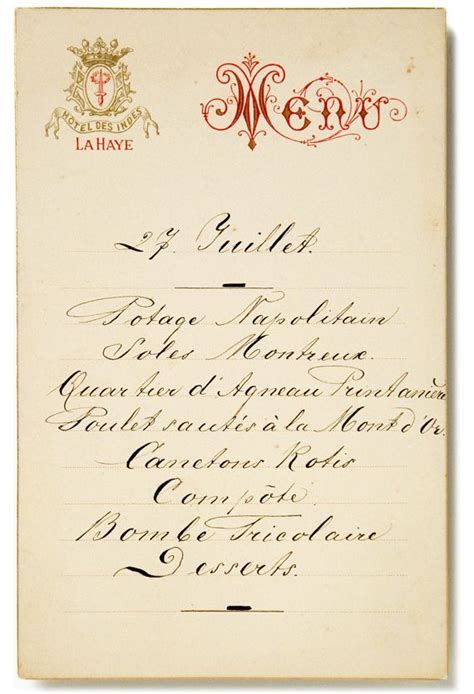 HOTEL DES INDES
LA HAYE
Menu
27. Juillet.
Potage Napolitain
Soles Montreux.
Quartier d'Agneau Printanière
Poulet sautés à la Mont d'Or.
Canetons Rotis
Compôte.
Bombe Tricolaire
Desserts.